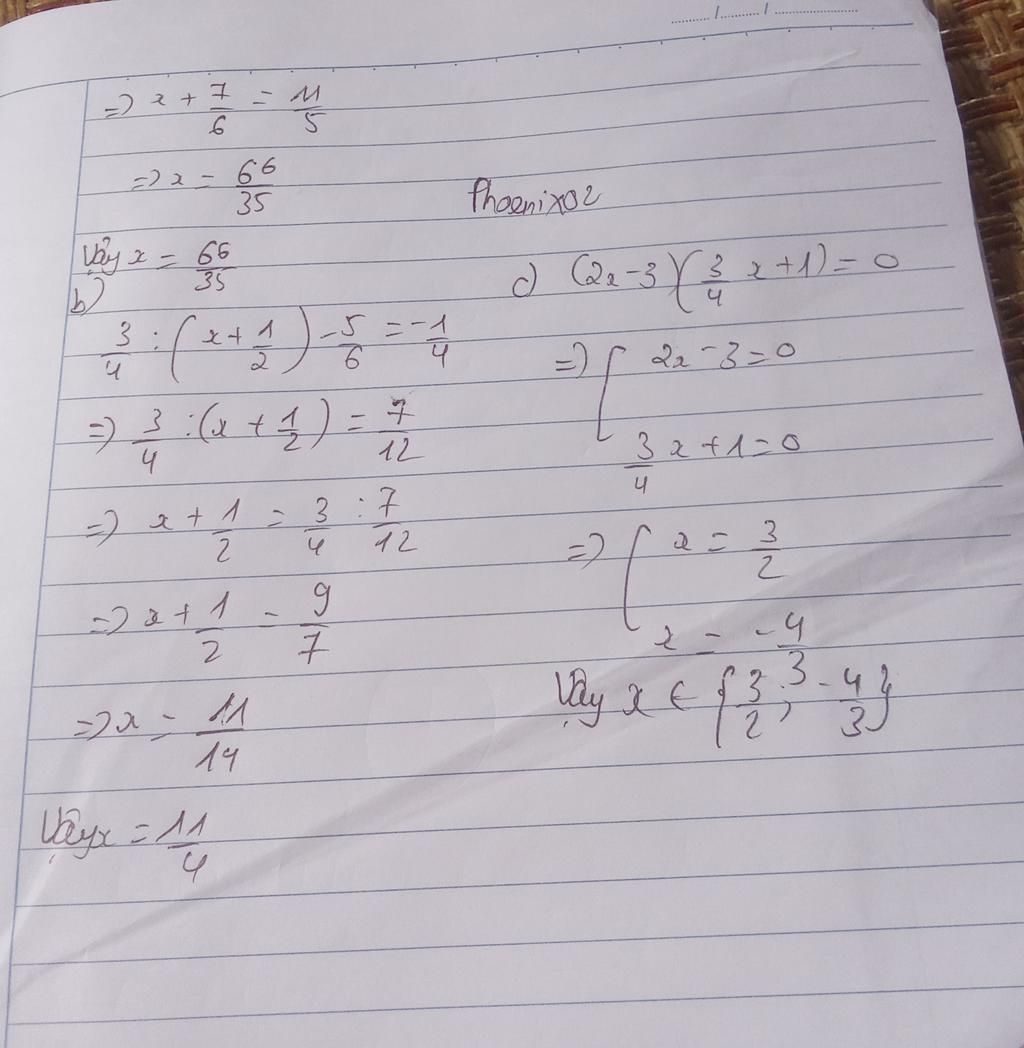 => x + 7/6 = 11/5
=> x = 66/35
Vậy x = 66/35
b)
3/4 : (x + 1/2) - 5/6 = -1/4
=> 3/4 : (x + 1/2) = 7/12
=> x + 1/2 = 3/4 : 7/12
=> x + 1/2 = 9/7
=> x = 11/14
Vậy x = 11/4
Phoenix02
c) (2x - 3)(3/4 x + 1) = 0
=> [ 2x - 3 = 0
3/4 x + 1 = 0
=> [ x = 3/2
x = -4/3
Vậy x ∈ {3/2; -4/3}